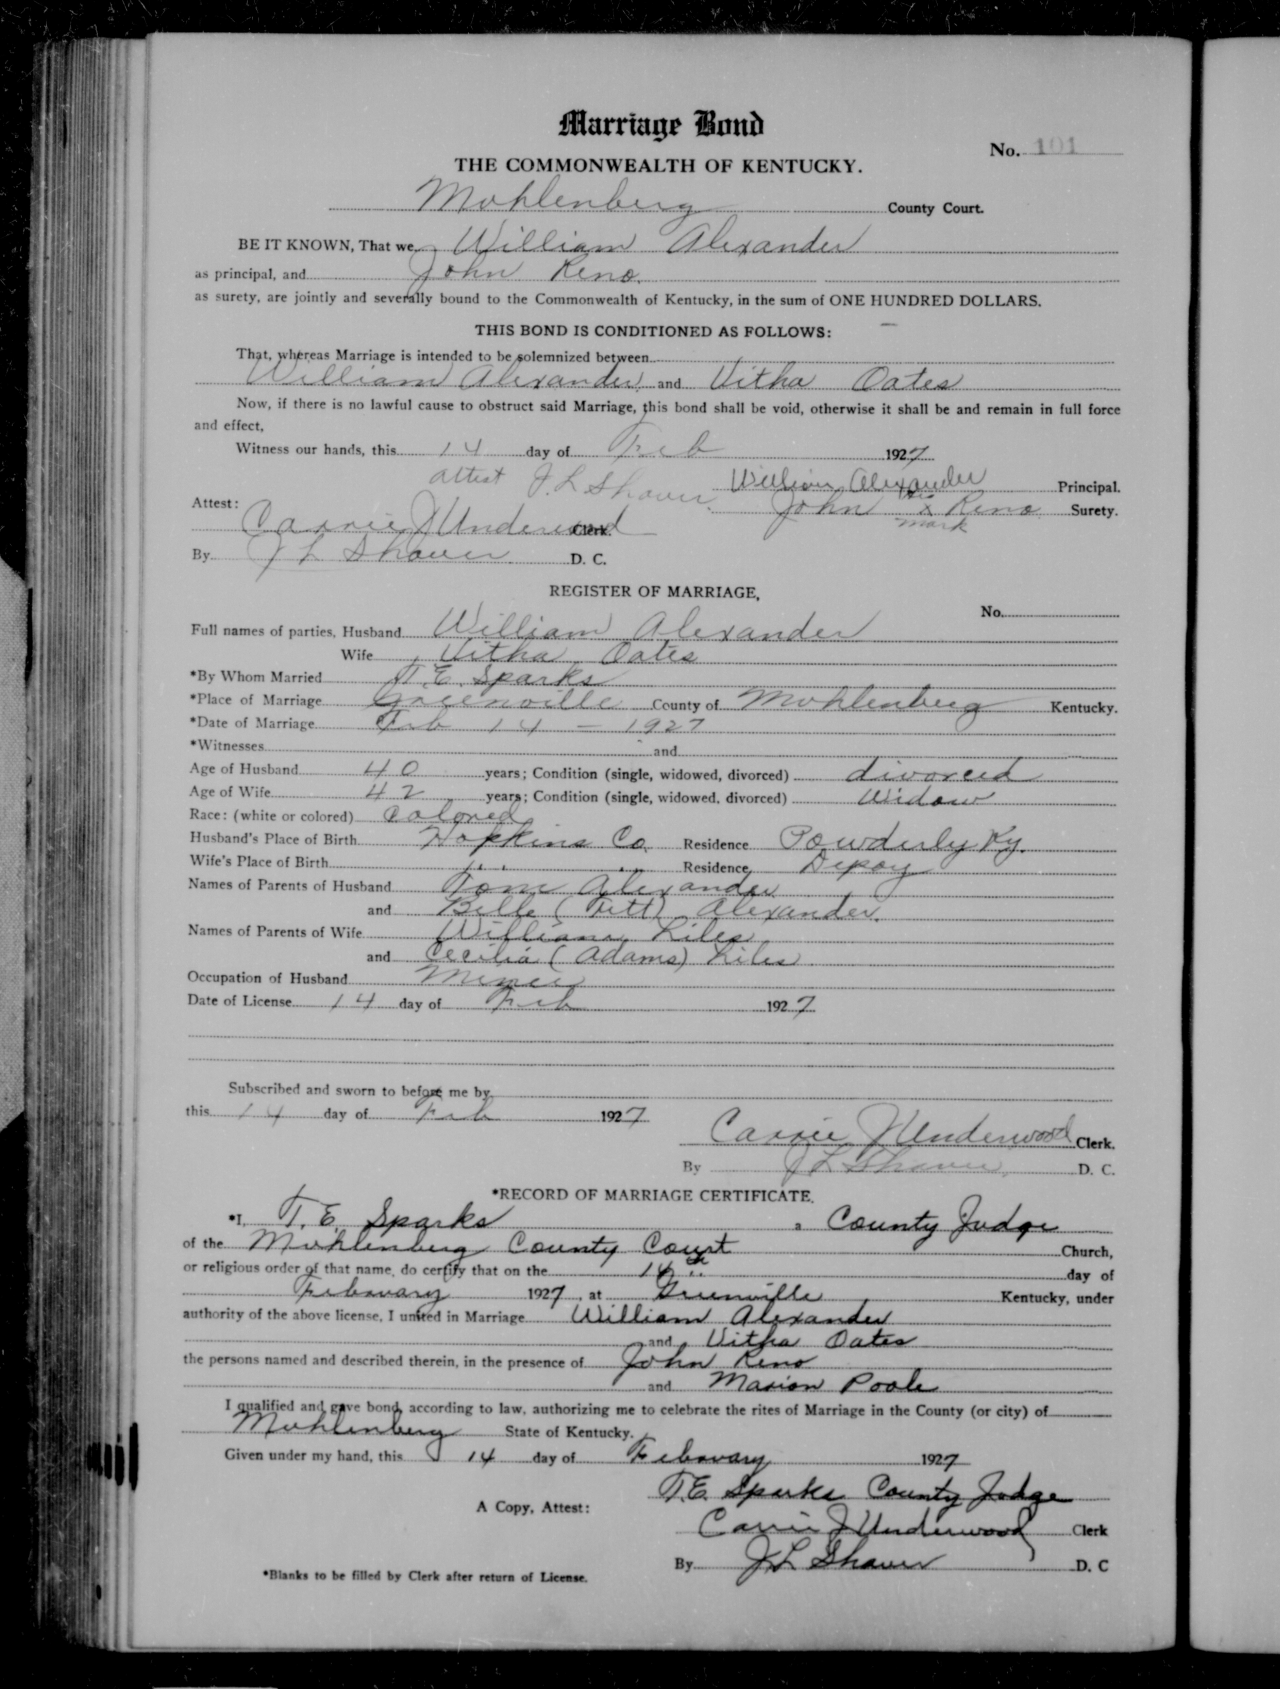 Marriage Bond
No. 101
THE COMMONWEALTH OF KENTUCKY.
Muhlenberg County Court.
BE IT KNOWN, That we William Alexander
as principal, and John Reno.
as surety, are jointly and severally bound to the Commonwealth of Kentucky, in the sum of ONE HUNDRED DOLLARS.
THIS BOND IS CONDITIONED AS FOLLOWS:
That, whereas Marriage is intended to be solemnized between
William Alexander and Vitha Oates
Now, if there is no lawful cause to obstruct said Marriage, this bond shall be void, otherwise it shall be and remain in full force
and effect,
Witness our hands, this 14 day of Feb 1927
attest J. L Shaver. William Alexander Principal.
Attest: John his x mark Reno Surety.
Carrie J Underwood Clerk.
By J L Shaver D. C.
REGISTER OF MARRIAGE,
No.
Full names of parties, Husband William Alexander
Wife Vitha Oates
*By Whom Married T. E. Sparks
*Place of Marriage Greenville County of Muhlenberg Kentucky.
*Date of Marriage Feb 14 - 1927
*Witnesses and
Age of Husband 40 years; Condition (single, widowed, divorced) divorced
Age of Wife 42 years; Condition (single, widowed, divorced) Widow
Race: (white or colored) Colored
Husband's Place of Birth Hopkins Co. Residence Powderly Ky.
Wife's Place of Birth " " Residence Depoy
Names of Parents of Husband Tom Alexander
and Belle ( ) Alexander.
Names of Parents of Wife William Liles
and Cecilia (Adams) Liles
Occupation of Husband Miner
Date of License 14 day of Feb 1927
Subscribed and sworn to before me by
this 14 day of Feb 1927
Carrie J Underwood Clerk.
By J L Shaver D. C.
*RECORD OF MARRIAGE CERTIFICATE.
*I, T. E. Sparks a County Judge
of the Muhlenberg County Court Church,
or religious order of that name, do certify that on the 14th day of
February 1927, at Greenville Kentucky, under
authority of the above license, I united in Marriage William Alexander
and Vitha Oates
the persons named and described therein, in the presence of John Reno
and Marion Poole
I qualified and gave bond, according to law, authorizing me to celebrate the rites of Marriage in the County (or city) of
Muhlenberg State of Kentucky.
Given under my hand, this 14 day of February 1927
T. E. Sparks County Judge
A Copy, Attest:
Carrie J Underwood Clerk
By J L Shaver D. C
*Blanks to be filled by Clerk after return of License.